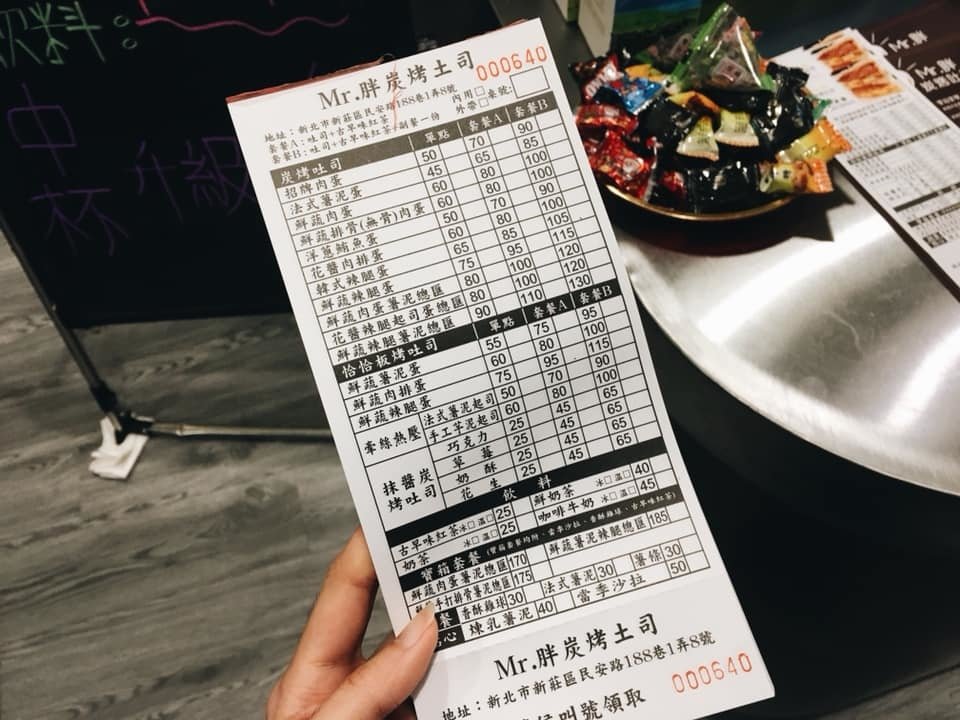 飲料。
中杯升級
Mr.胖炭烤土司
000640
地址：新北市新莊區民安路188巷1弄8號
套餐A：吐司+古早味紅茶
套餐B：吐司+古早味紅茶+副餐一份
內用□ 桌號：
外帶□
炭烤吐司 單點 套餐A 套餐B
招牌肉蛋 50 70 90
法式薯泥蛋 45 65 85
鮮蔬肉蛋 60 80 100
鮮蔬排骨(無骨)肉蛋 60 80 100
洋蔥鮪魚蛋 50 70 90
花醬肉排蛋 60 80 100
韓式辣腿蛋 65 85 105
鮮蔬辣腿蛋 75 95 115
鮮蔬肉蛋薯泥總匯 80 100 120
花醬辣腿起司蛋總匯 80 100 120
鮮蔬辣腿薯泥總匯 90 110 130
恰恰板烤吐司 單點 套餐A 套餐B
鮮蔬薯泥蛋 55 75 95
鮮蔬肉排蛋 60 80 100
鮮蔬辣腿蛋 75 95 115
牽絲熱壓 法式薯泥起司 50 70 90
手工芋泥起司 60 80 100
抹醬炭烤吐司 巧克力 25 45 65
草莓 25 45 65
奶酥 25 45 65
花生 25 45 65
飲料
古早味紅茶 冰□ 溫□ 25 鮮奶茶 冰□ 溫□ 40
奶茶 冰□ 溫□ 25 咖啡牛奶 冰□ 溫□ 45
寶箱套餐 (寶箱套餐均附、當季沙拉、香酥雞球、古早味紅茶)
鮮蔬肉蛋薯泥總匯 170 鮮蔬薯泥辣腿總匯 185
手打排骨薯泥總匯 175
餐 香酥雞球 30 法式薯泥 30 薯條 30
心 煉乳薯泥 40 當季沙拉 50
Mr.胖炭烤土司
地址：新北市新莊區民安路188巷1弄8號
000640
叫號領取